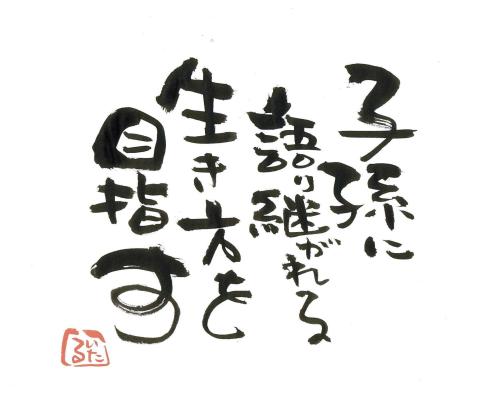 子孫に
語り継がれる
生き方を
目指す
いたる